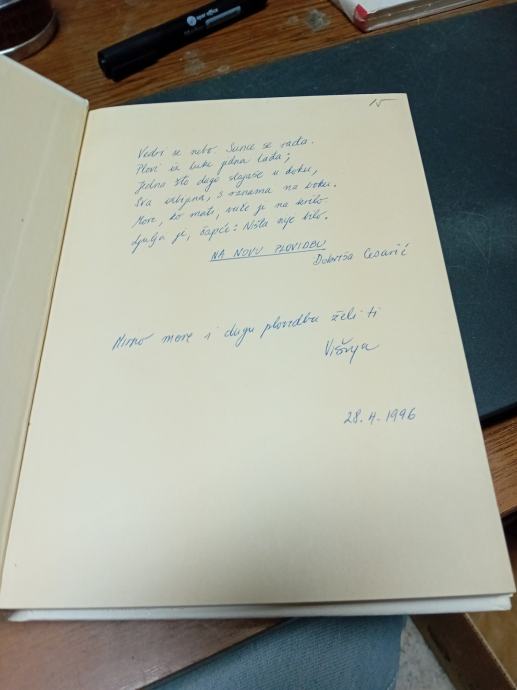 15
Vedri se nebo. Sunce se rađa.
Plovi iz luke jedna lađa;
Jedna što dugo stajaše u doku,
Sva izbijena, s ranama na boku.
More, ko mati, uze je na krilo
Ljulja je, šapće: Ništa nije bilo.
NA NOVU PLOVIDBU
Dobriša Cesarić
Mirno more i dugu plovidbu želi ti
Višnja
28.4.1996